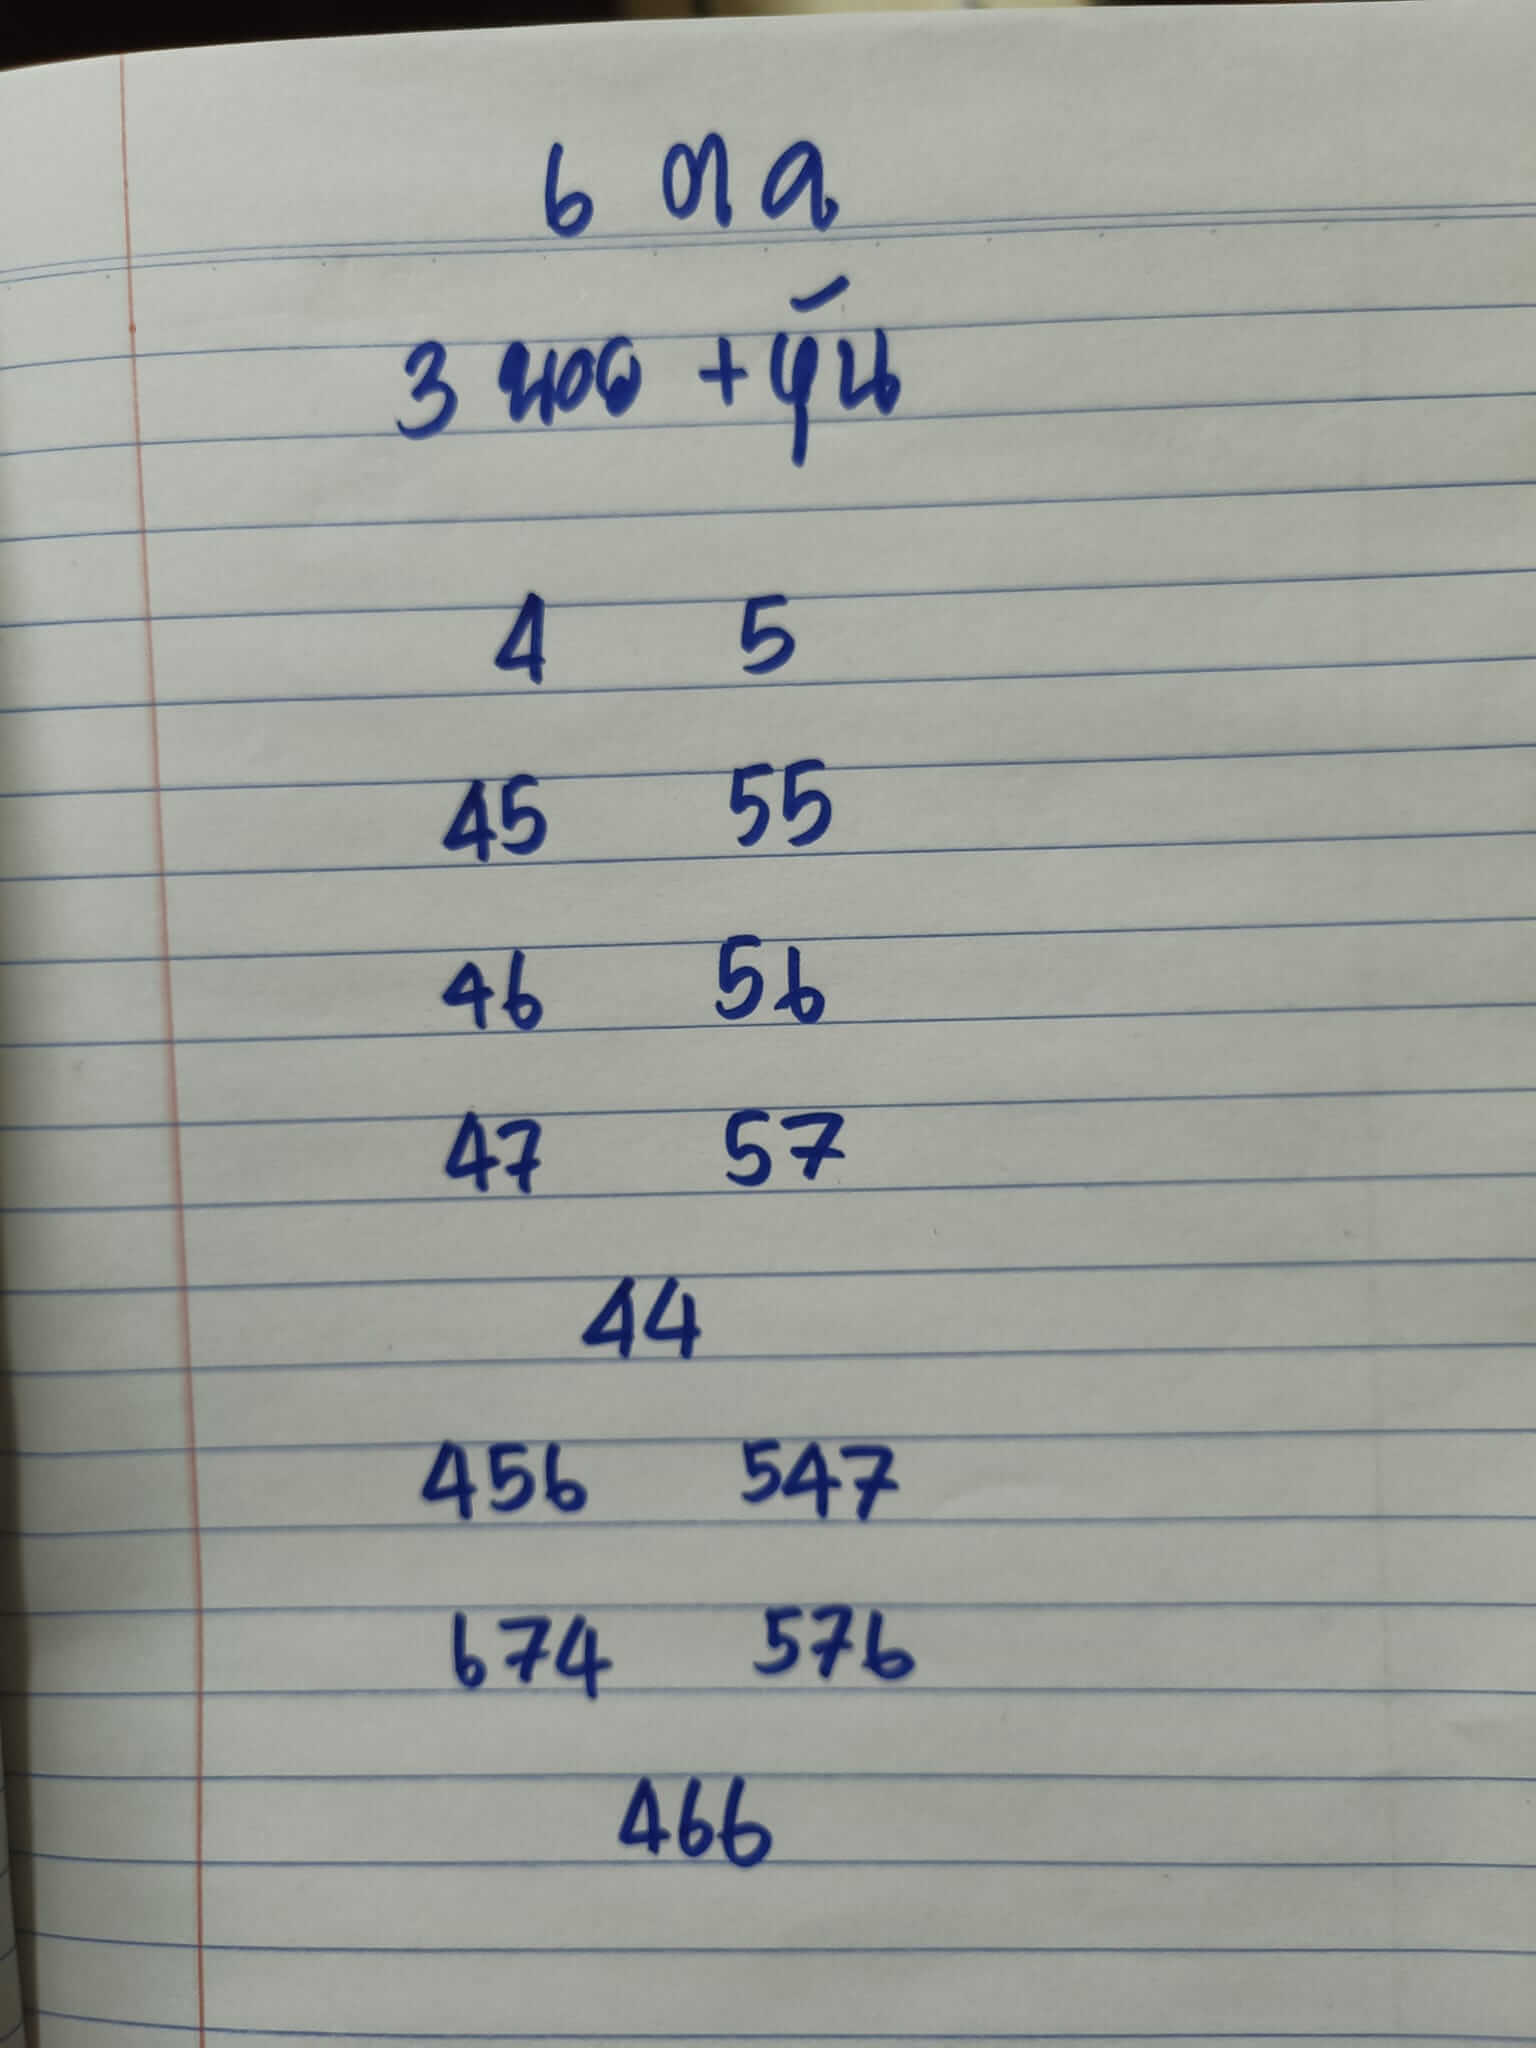 6 ตค
3 นอย + หุ้น
4 5
45 55
46 56
47 57
44
456 547
674 576
466